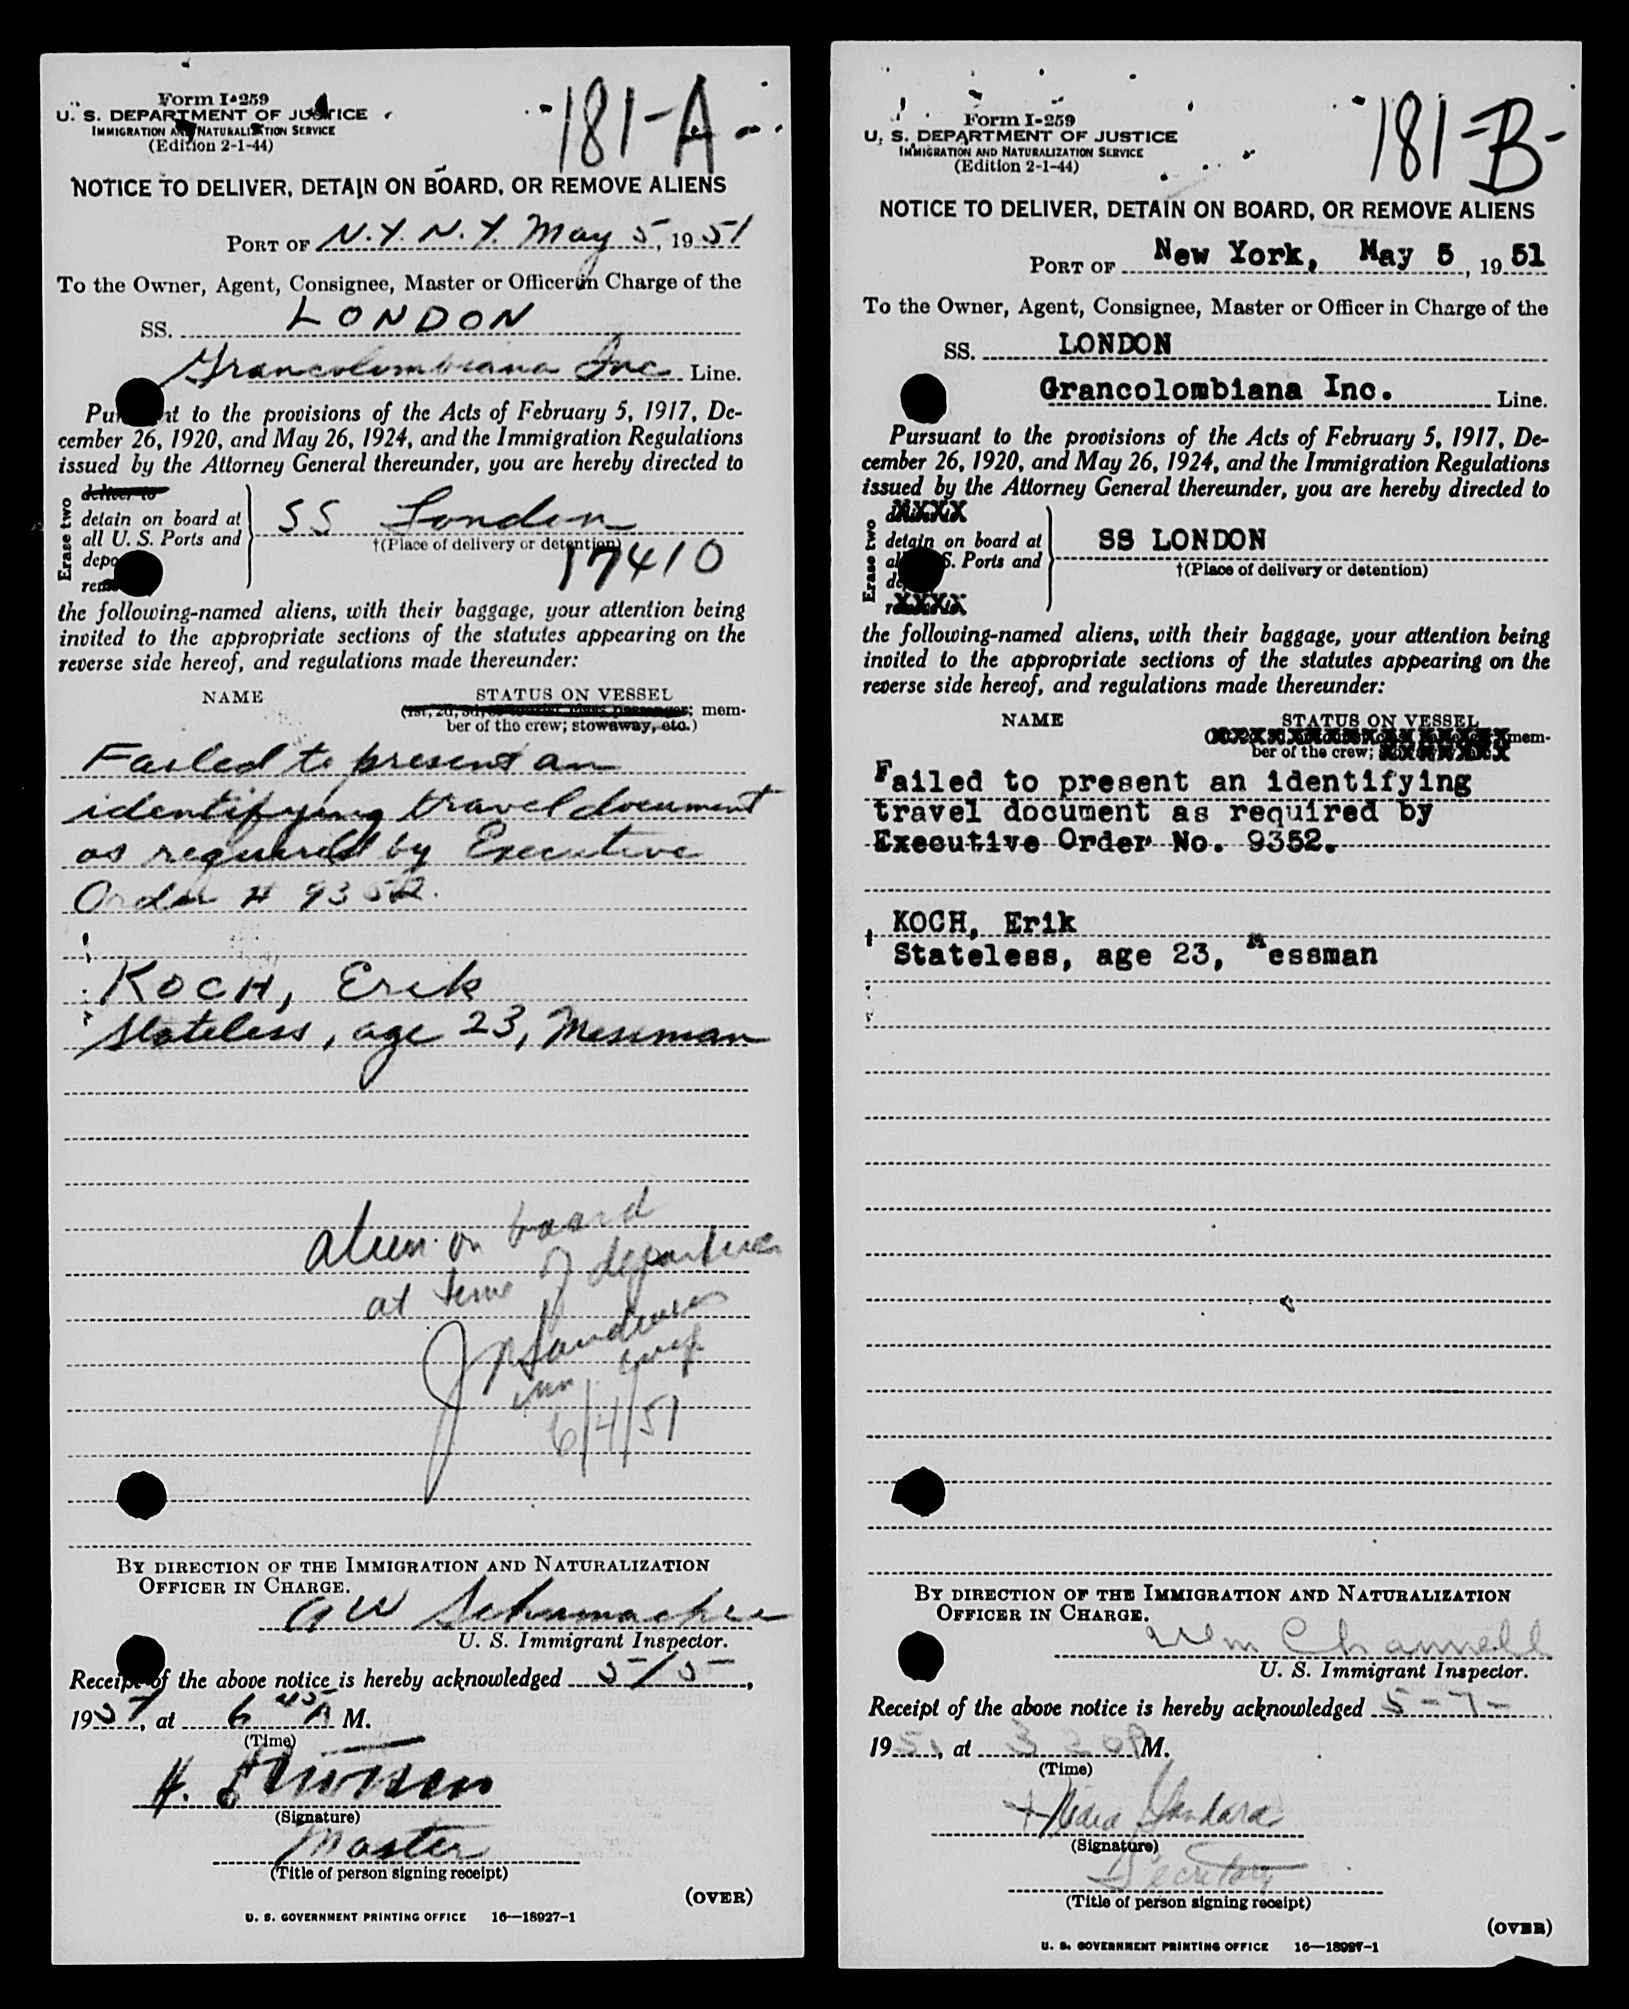 Form I-259
U. S. DEPARTMENT OF JUSTICE
IMMIGRATION AND NATURALIZATION SERVICE
(Edition 2-1-44)
181-A
NOTICE TO DELIVER, DETAIN ON BOARD, OR REMOVE ALIENS
PORT OF N.Y. N.Y. May 5, 1951
To the Owner, Agent, Consignee, Master or Officer in Charge of the
SS. LONDON
Grancolombiana Inc Line.
Pursuant to the provisions of the Acts of February 5, 1917, De-
cember 26, 1920, and May 26, 1924, and the Immigration Regulations
issued by the Attorney General thereunder, you are hereby directed to
Erase two
deliver to
detain on board at
all U. S. Ports and
SS London
†(Place of delivery or detention)
17410
the following-named aliens, with their baggage, your attention being
invited to the appropriate sections of the statutes appearing on the
reverse side hereof, and regulations made thereunder:
NAME
STATUS ON VESSEL
mem-
ber of the crew; stowaway, etc.)
Failed to present an
identifying travel document
as required by Executive
Order # 9352.
KOCH, Erik
Stateless, age 23, Messman
alien on board
at time of departure
6/4/51
BY DIRECTION OF THE IMMIGRATION AND NATURALIZATION
OFFICER IN CHARGE.
A W Schumacher
U. S. Immigrant Inspector.
Receipt of the above notice is hereby acknowledged 5/5,
1951, at 6 45 A M.
(Time)
H.
(Signature)
Master
(Title of person signing receipt)
(OVER)
U. S. GOVERNMENT PRINTING OFFICE 16—18927-1
Form I-259
U. S. DEPARTMENT OF JUSTICE
IMMIGRATION AND NATURALIZATION SERVICE
(Edition 2-1-44)
181-B-
NOTICE TO DELIVER, DETAIN ON BOARD, OR REMOVE ALIENS
PORT OF New York, May 5, 1951
To the Owner, Agent, Consignee, Master or Officer in Charge of the
SS. LONDON
Grancolombiana Inc. Line.
Pursuant to the provisions of the Acts of February 5, 1917, De-
cember 26, 1920, and May 26, 1924, and the Immigration Regulations
issued by the Attorney General thereunder, you are hereby directed to
Erase two
detain on board at
all U. S. Ports and
SS LONDON
†(Place of delivery or detention)
the following-named aliens, with their baggage, your attention being
invited to the appropriate sections of the statutes appearing on the
reverse side hereof, and regulations made thereunder:
NAME
STATUS ON VESSEL
mem-
ber of the crew;
Failed to present an identifying
travel document as required by
Executive Order No. 9352.
KOCH, Erik
Stateless, age 23, Messman
BY DIRECTION OF THE IMMIGRATION AND NATURALIZATION
OFFICER IN CHARGE.
Wm Channell
U. S. Immigrant Inspector.
Receipt of the above notice is hereby acknowledged 5-7-
1951, at 3 20 P M.
(Time)
(Signature)
Secretary
(Title of person signing receipt)
(OVER)
U. S. GOVERNMENT PRINTING OFFICE 16—18927-1